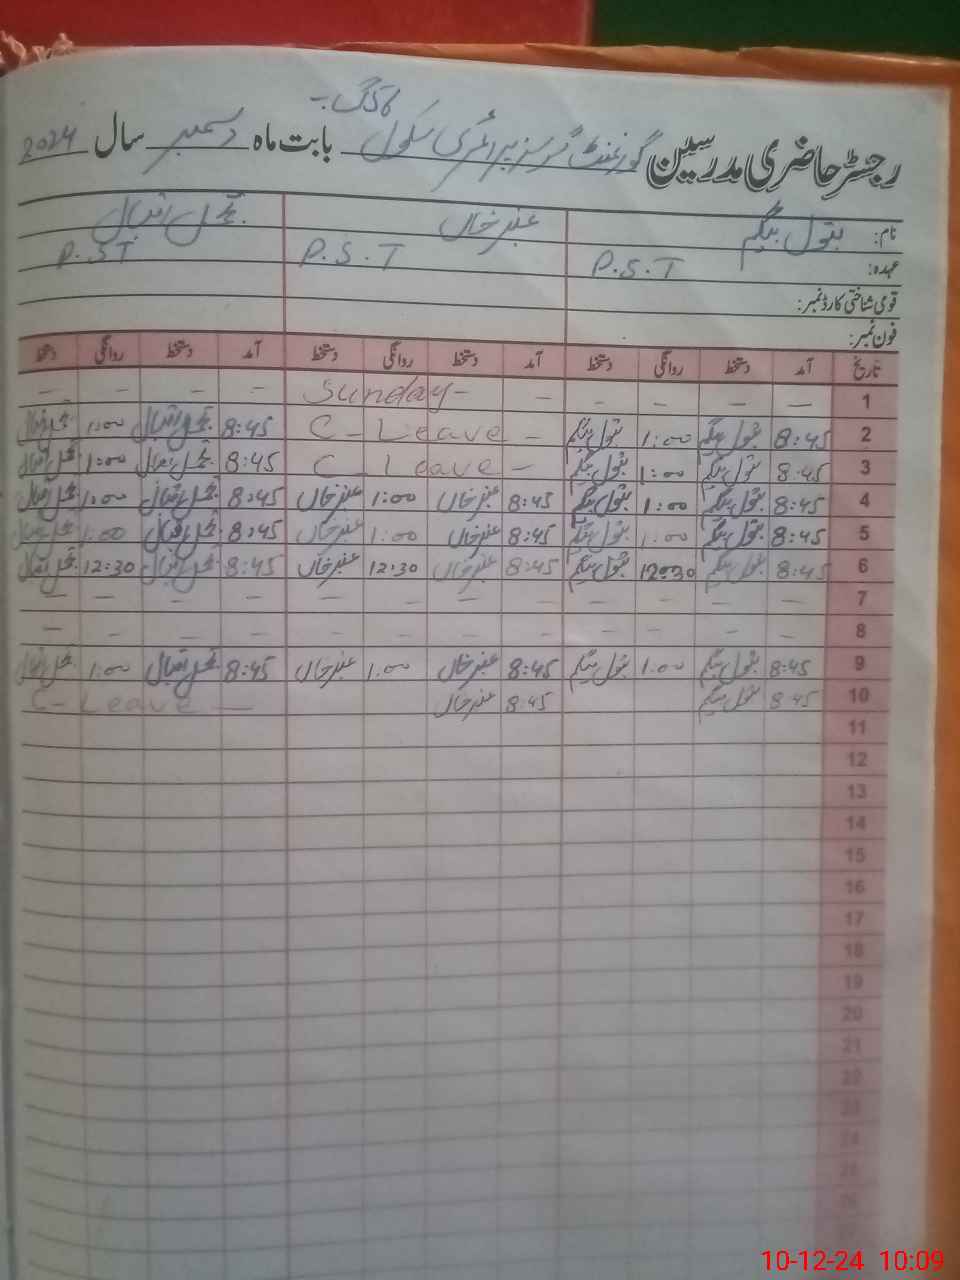 گورنمنٹ گرلز پرائمری سکول
رجسٹر حاضری مدرسین بابت ماہ دسمبر سال 2024
نام: بتول بیگم عنبر خان اقبال
عہدہ: P.S.T P.S.T P.S.T
قومی شناختی کارڈ نمبر:
فون نمبر:
تاریخ آمد دستخط روانگی دستخط آمد دستخط روانگی دستخط آمد دستخط روانگی دستخط
1 — — — — Sunday — — — — —
2 8:45 بتول بیگم 1:00 بتول بیگم C - Leave - 8:45 اقبال 1:00 اقبال
3 8:45 بتول بیگم 1:00 بتول بیگم C - Leave - 8:45 اقبال 1:00 اقبال
4 8:45 بتول بیگم 1:00 بتول بیگم 8:45 عنبر خان 1:00 عنبر خان 8:45 اقبال 1:00 اقبال
5 8:45 بتول بیگم 1:00 بتول بیگم 8:45 عنبر خان 1:00 عنبر خان 8:45 اقبال 1:00 اقبال
6 8:45 بتول بیگم 12:30 بتول بیگم 8:45 عنبر خان 12:30 عنبر خان 8:45 اقبال 12:30 اقبال
7 — — — — — — — — — — — —
8 — — — — — — — — — — — —
9 8:45 بتول بیگم 1:00 بتول بیگم 8:45 عنبر خان 1:00 عنبر خان 8:45 اقبال 1:00 اقبال
10 8:45 بتول بیگم 8:45 عنبر خان C - Leave —
11
12
13
14
15
16
17
18
19
20
21
22
23
24
25
26
10-12-24 10:09